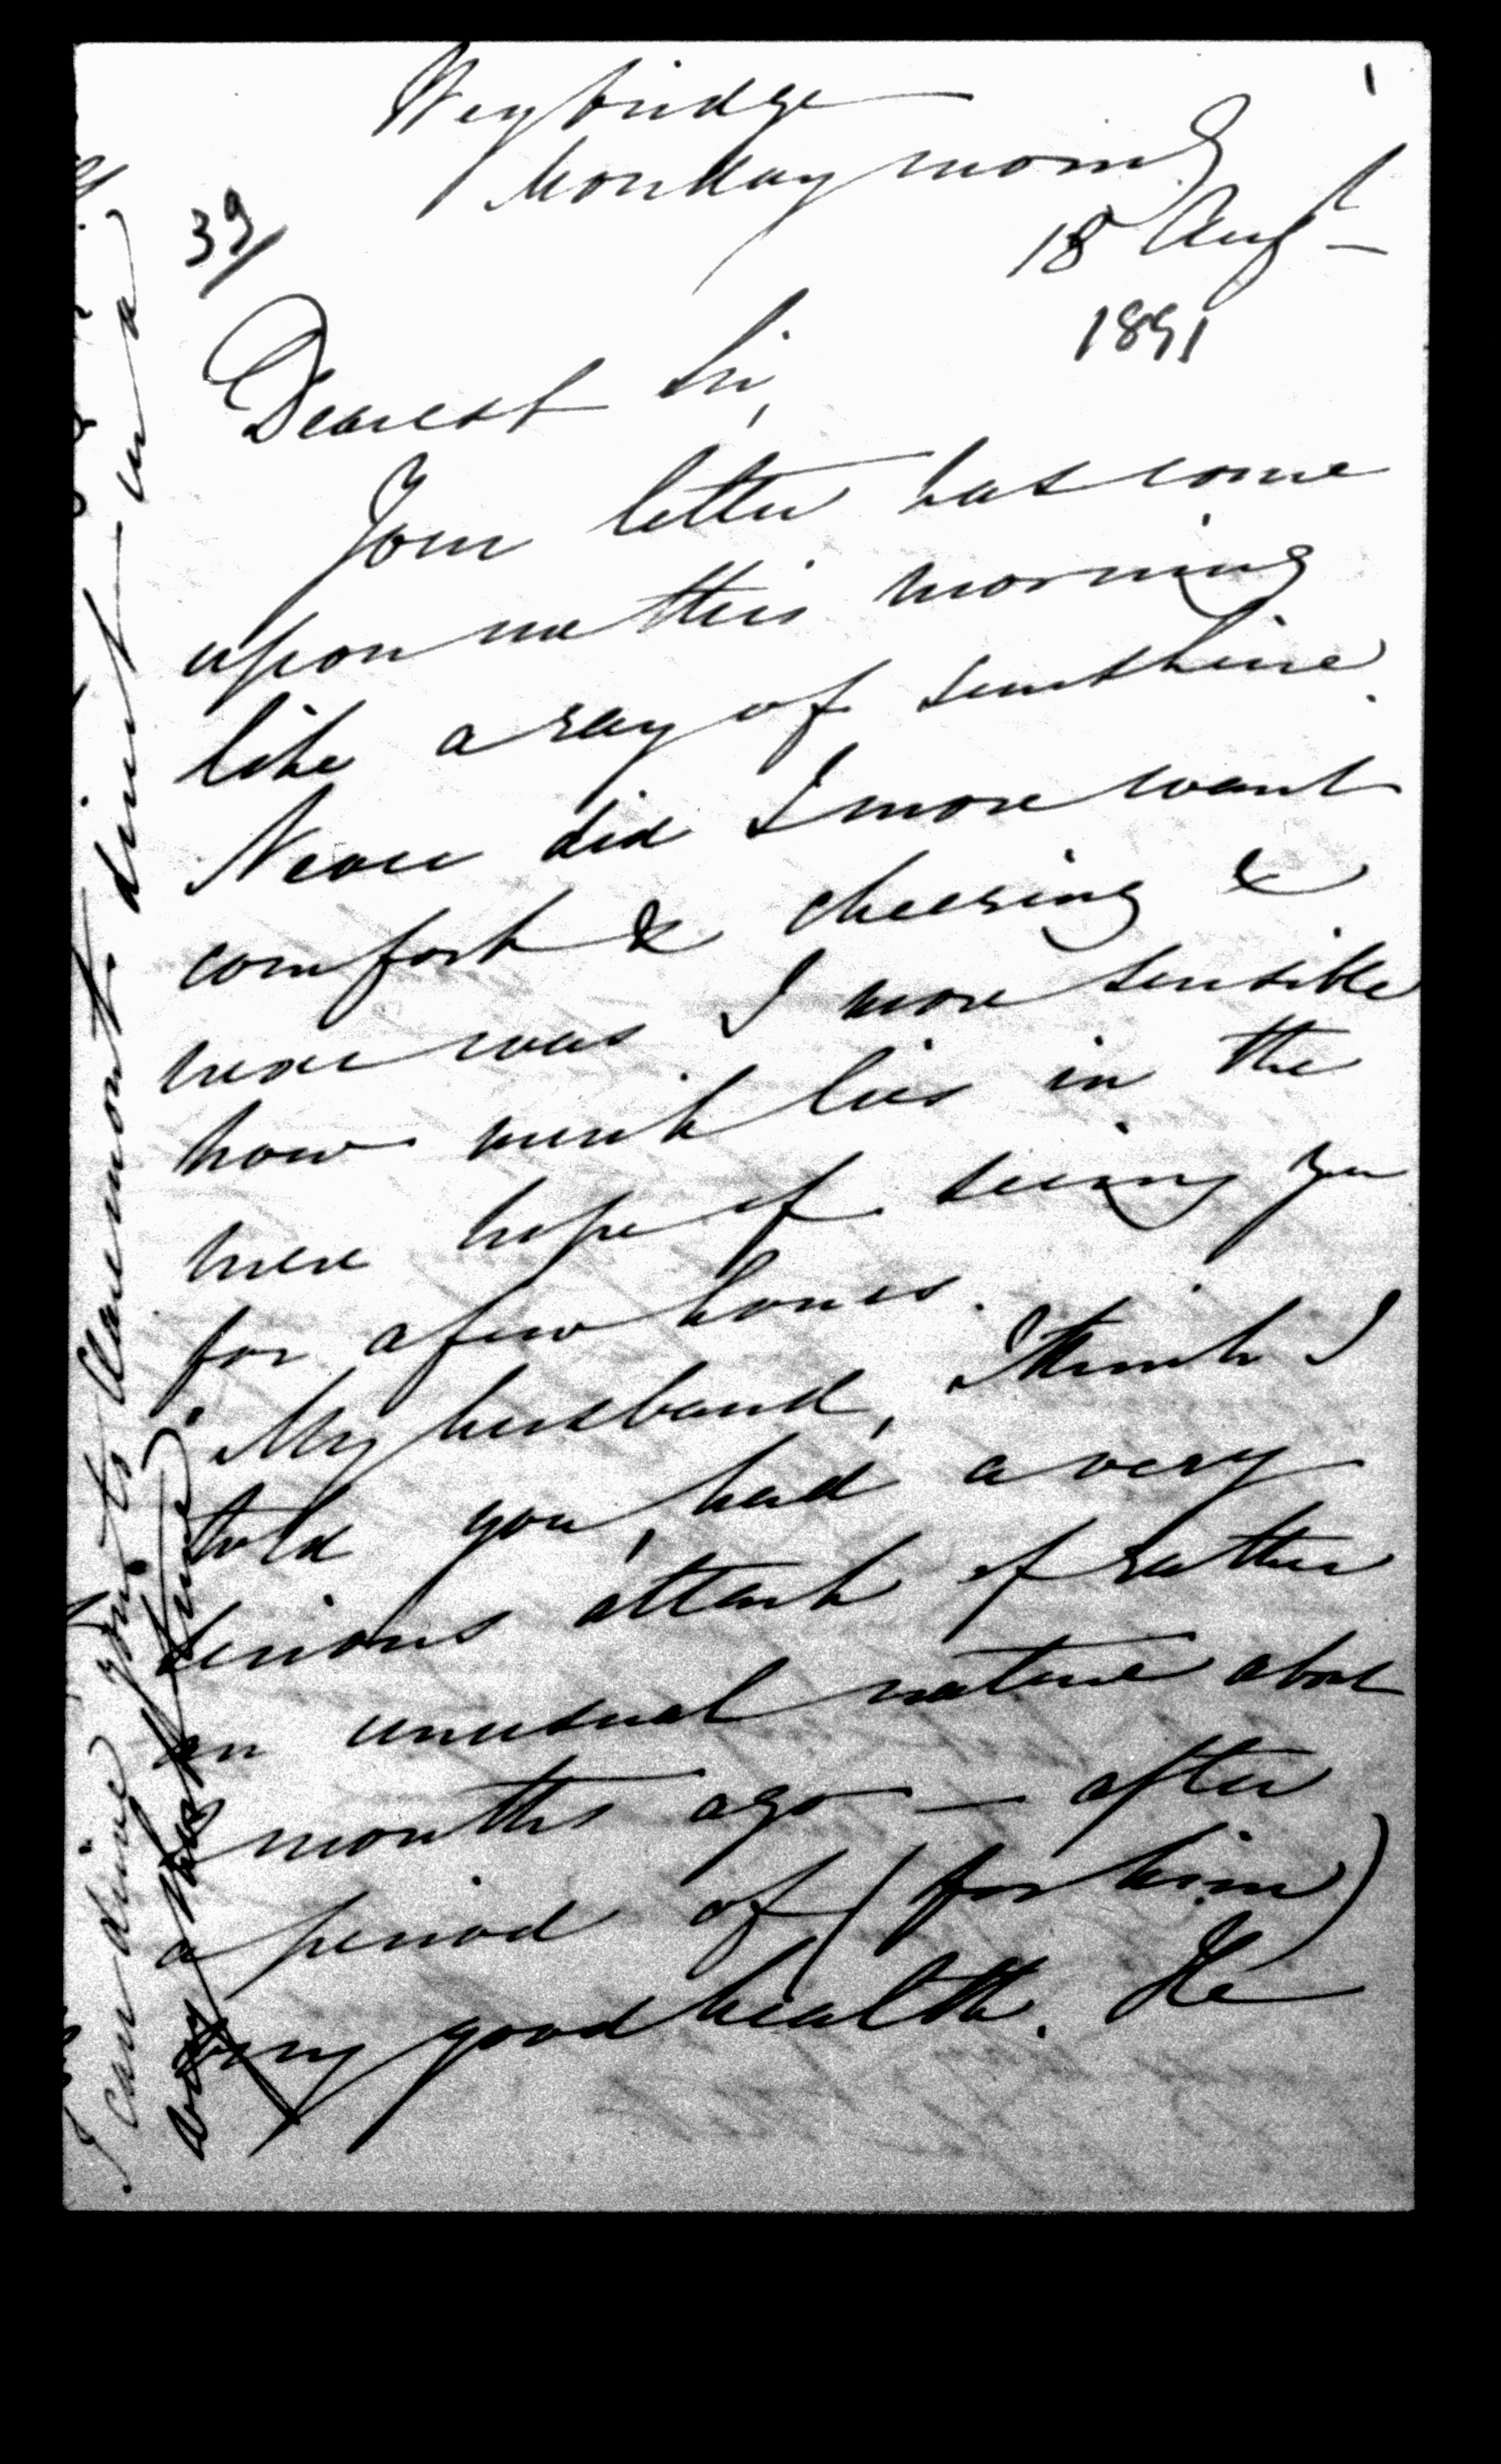 1
Weybridge
Monday morng
18 Augt
1851
39/
Dearest Sir,
Your letter has come
upon me this morning
like a ray of sunshine.
Never did I more want
comfort & cheering &
never was I more sensible
how much lies in the
mere hope of seeing you
for a few hours.
My husband, I think I
told you, had a very
serious attack of rather
an unusual nature about
months ago — after
a period of (for him)
very good health. He
I can drive you to Claremont, dinent in a